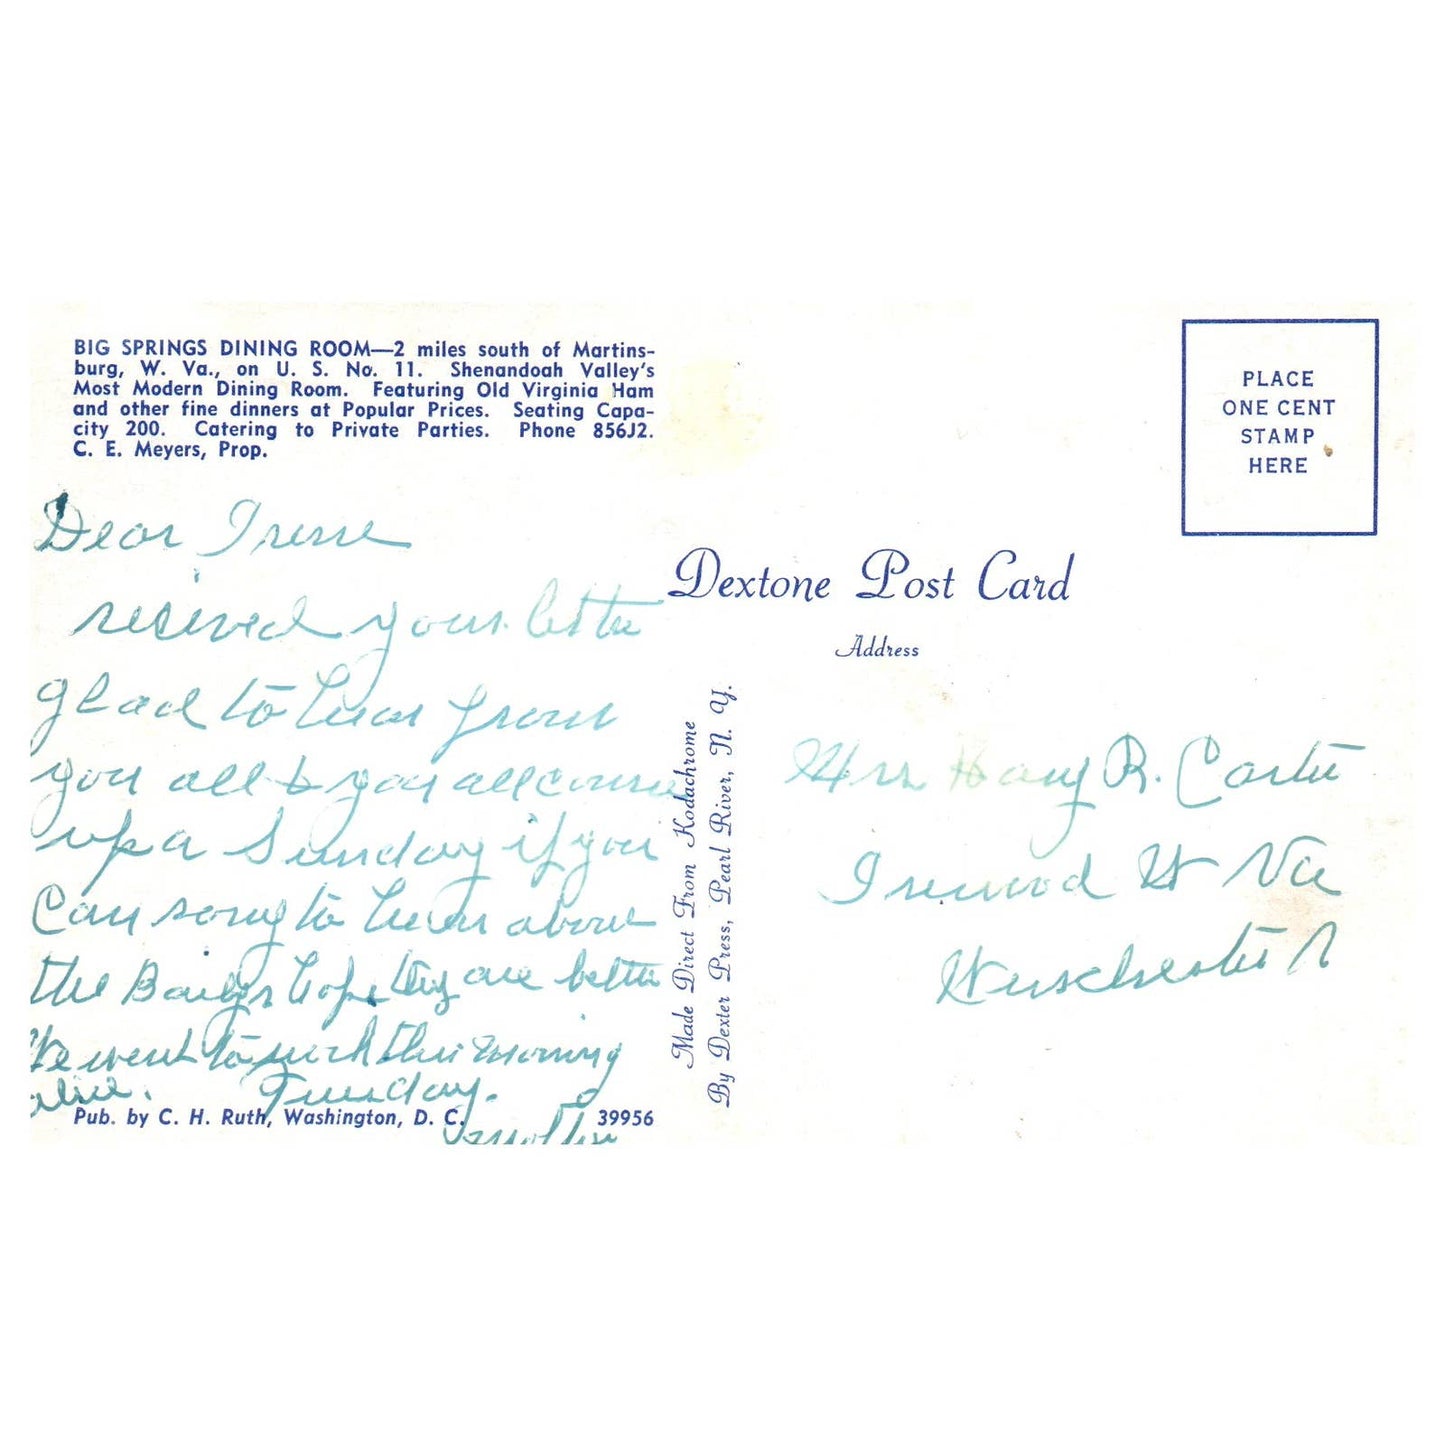 BIG SPRINGS DINING ROOM—2 miles south of Martins-
burg, W. Va., on U. S. No. 11. Shenandoah Valley's
Most Modern Dining Room. Featuring Old Virginia Ham
and other fine dinners at Popular Prices. Seating Capa-
city 200. Catering to Private Parties. Phone 856J2.
C. E. Meyers, Prop.
Dear Irene
recived your letter
glad to hear from
you all & you all come
up a Sunday if you
Can sory to hear about
the hope they are better
We went to this morning
Tuesday.
Pub. by C. H. Ruth, Washington, D. C.
39956
Made Direct From Kodachrome
By Dexter Press, Pearl River, N. Y.
PLACE
ONE CENT
STAMP
HERE
Dextone Post Card
Address
Mrs Harry R. Carter
W Va